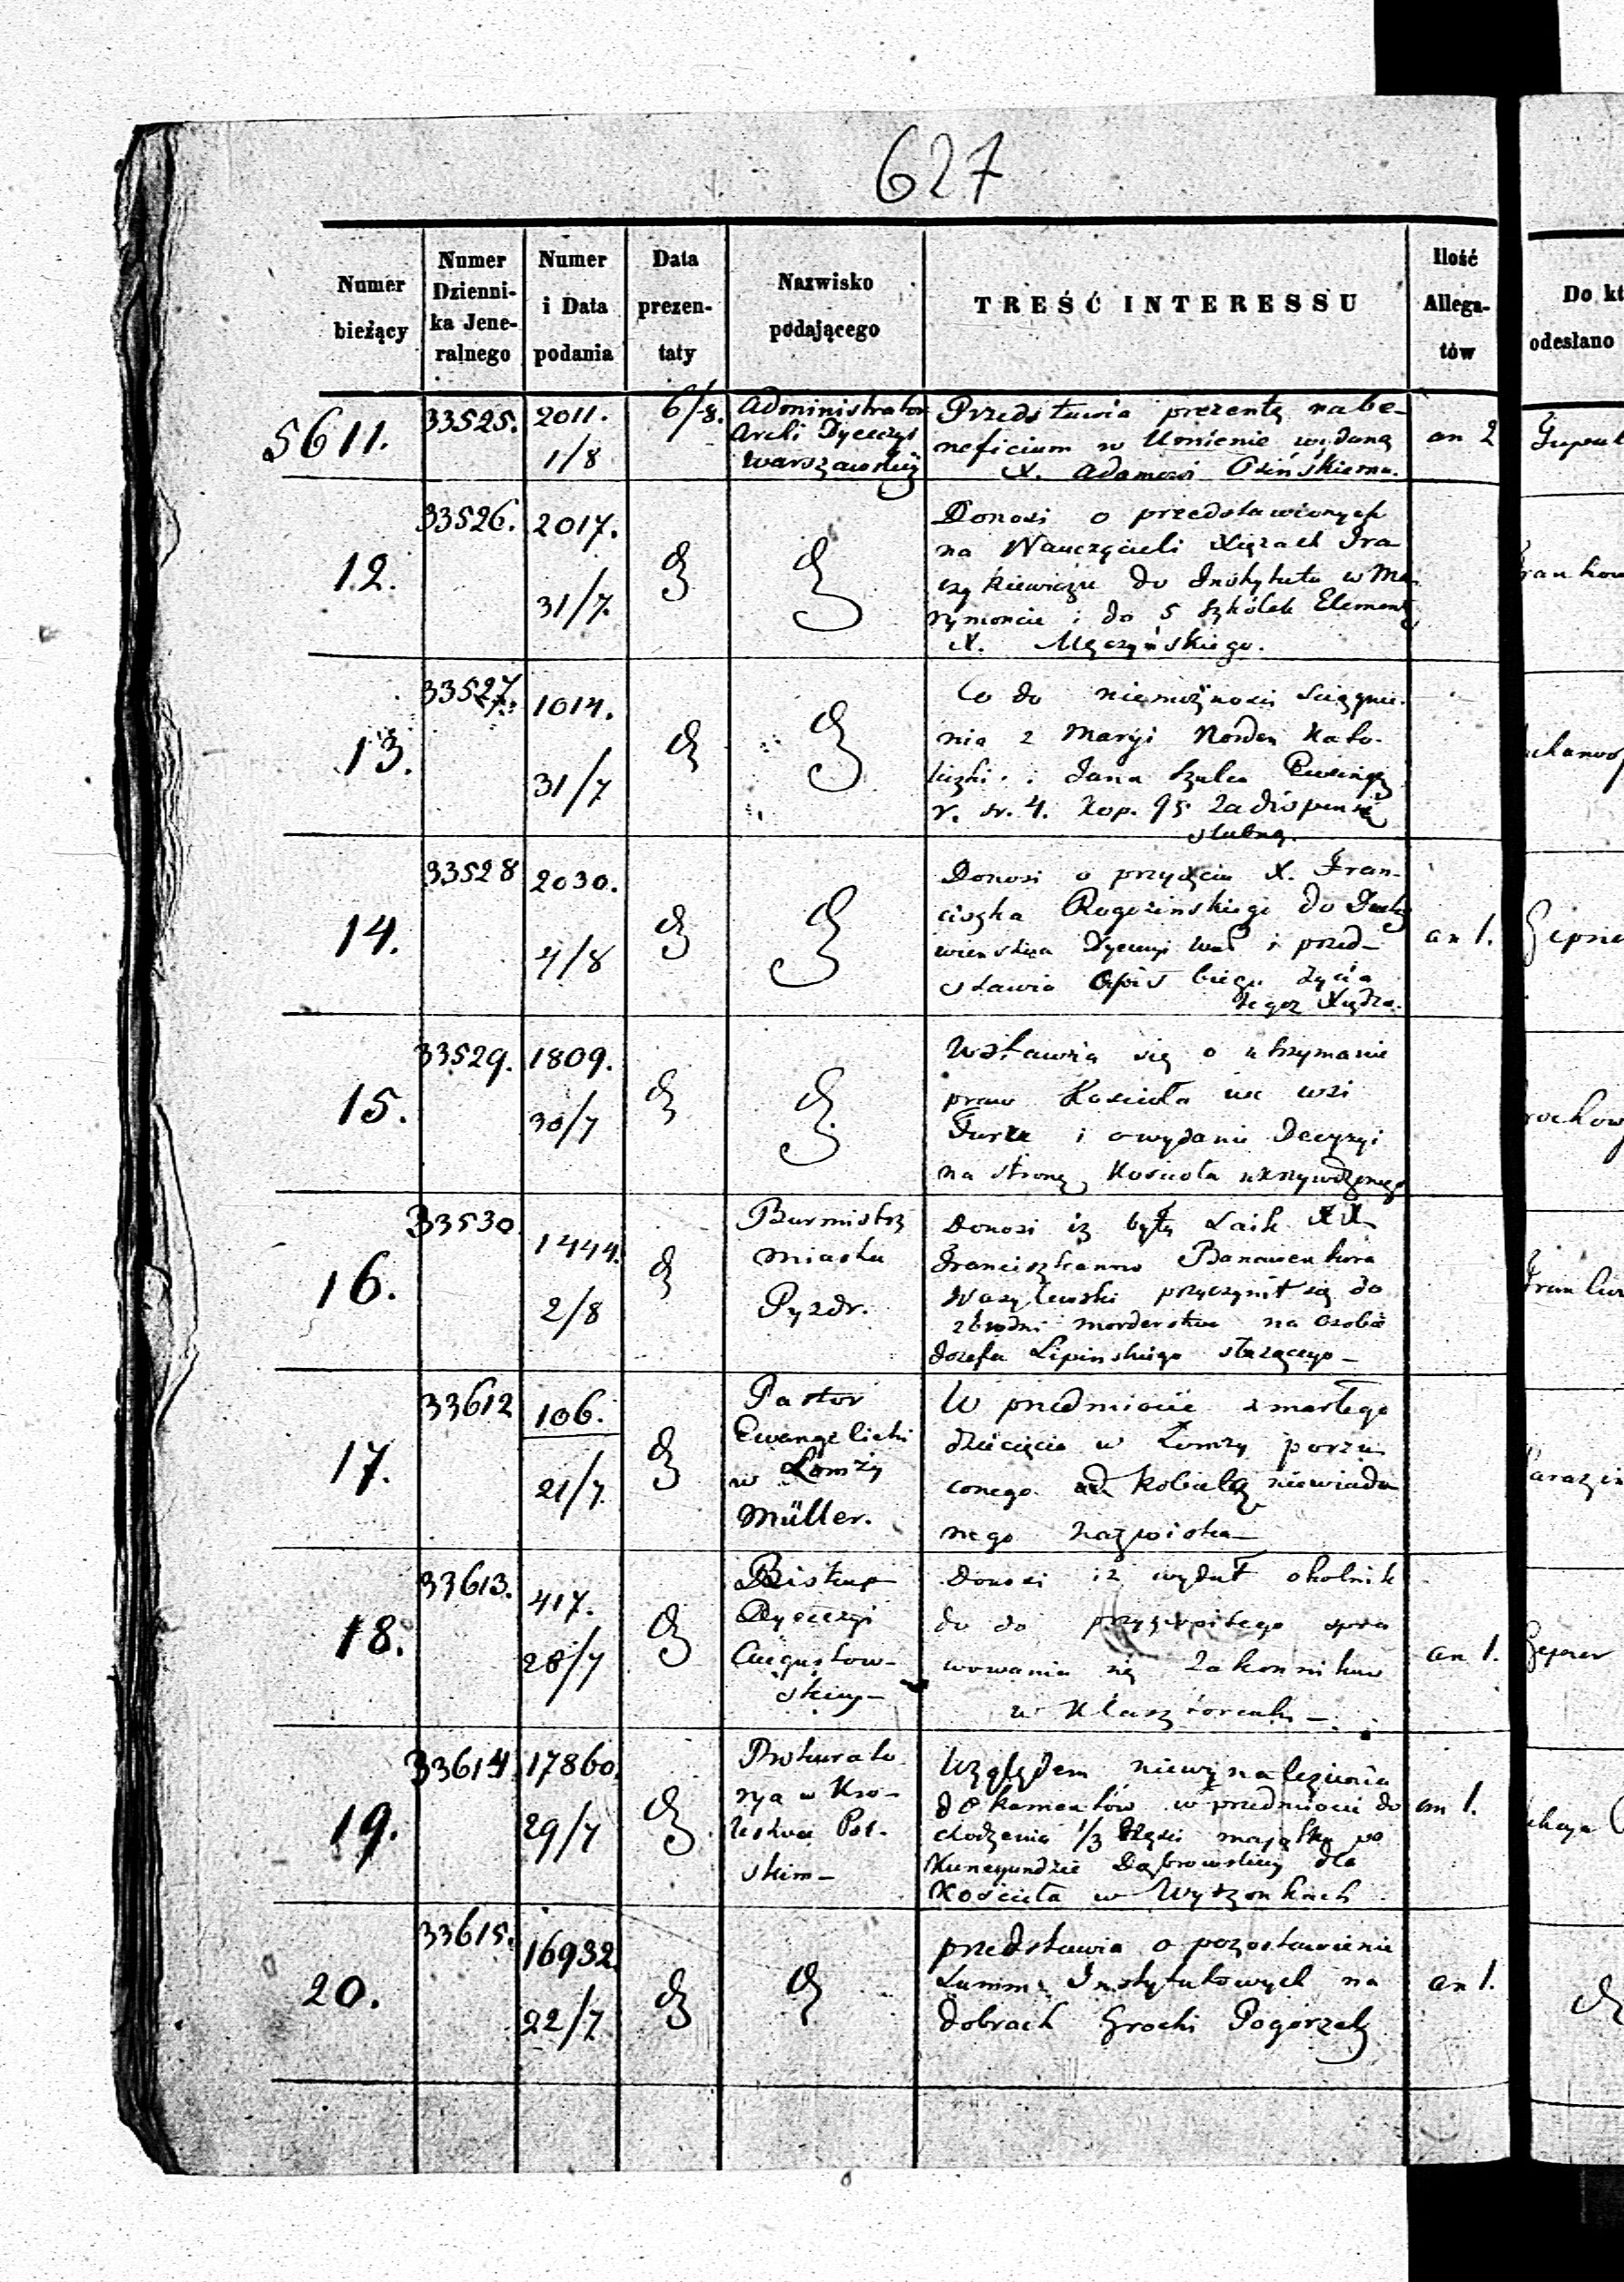 627
Numer bieżący | Numer Dzienni-ka Jene-ralnego | Numer i Data podania | Data prezen-taty | Nazwisko podającego | TREŚĆ INTERESSU | Ilość Allega-tów | Do kt odesłano
5611. 33525. 2011. 1/8 6/8.
Administrator
Archi Dyecezyi
Warszawskiej
Przedstawia prezentę na be-
neficium w wydaną
X. Adamowi Osińskiemu.
an 2
12. 33526. 2017. 31/7.
Donosi o przedstawionych
na Nauczycieli Xiężach
do Instytutu w Ma
rymoncie i do 5 szkółek Element
X. Męczyńskiego.
13. 33527. 1014. 31/7
Co do niemożności ściągnie-
nia z Maryi Norden Kato-
liczki i Jana Szulca
r. sr. 4. kop. 95 za dispensę
slubną.
14. 33528 2030. 4/8
Donosi o przyjęciu X. Fran-
ciszka Rogozinskiego do Ducho
wienstwa Dyecezyi i przed-
stawia Opis biegu życia
tegoż Xiędza.
an 1.
15. 33529. 1809. 30/7
Wstawia się o utrzymanie
praw Kościoła we wsi
i o wydanie Decyzyi
na stronę Kościoła ukrzywdzonego
16. 33530. 1444. 2/8
Burmistrz
miasta
Pyzdr.
Donosi iż były Laik XX
Franciszkanów Bonawentura
Wasylewski przyczynił się do
zbrodni morderstwa na osobie
Józefa Lipinskiego służącego-
17. 33612 106. 21/7
Pastor
Ewangelicki
w Łomży
Müller.
W przedmiocie zmarłego
dziecięcia w Łomży porzu
conego od kobiety niewiado
mego nazwiska-
18. 33613. 417. 28/7
Biskup
Dyecezyi
Augustow-
skiey-
Donosi iż wydał okolnik
do do przyzwoitego spra
wowania się Zakonników
w Klasztorach-
an 1.
19. 33614. 17860. 29/7
Prokurato
rya w Kro-
lestwie Pol-
skim-
Względem niewynalezienia
dokumentów w przedmiocie do
chodzenia 1/3 części majątku po
Kunegundzie Dąbrowskiey dla
Kościoła w Wyszonkach
an 1.
20. 33615. 16932. 22/7
przedstawia o pozostawienie
Summy Instytutowych na
dobrach Grochi Pogorzele
an 1.